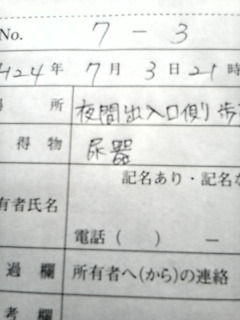 No. 7-3
424年 7月 3日 21時
所 夜間出入口側 歩
得物 尿器
記名あり・記名な
有者氏名
電話( ) —
過欄 所有者へ(から)の連絡
考欄